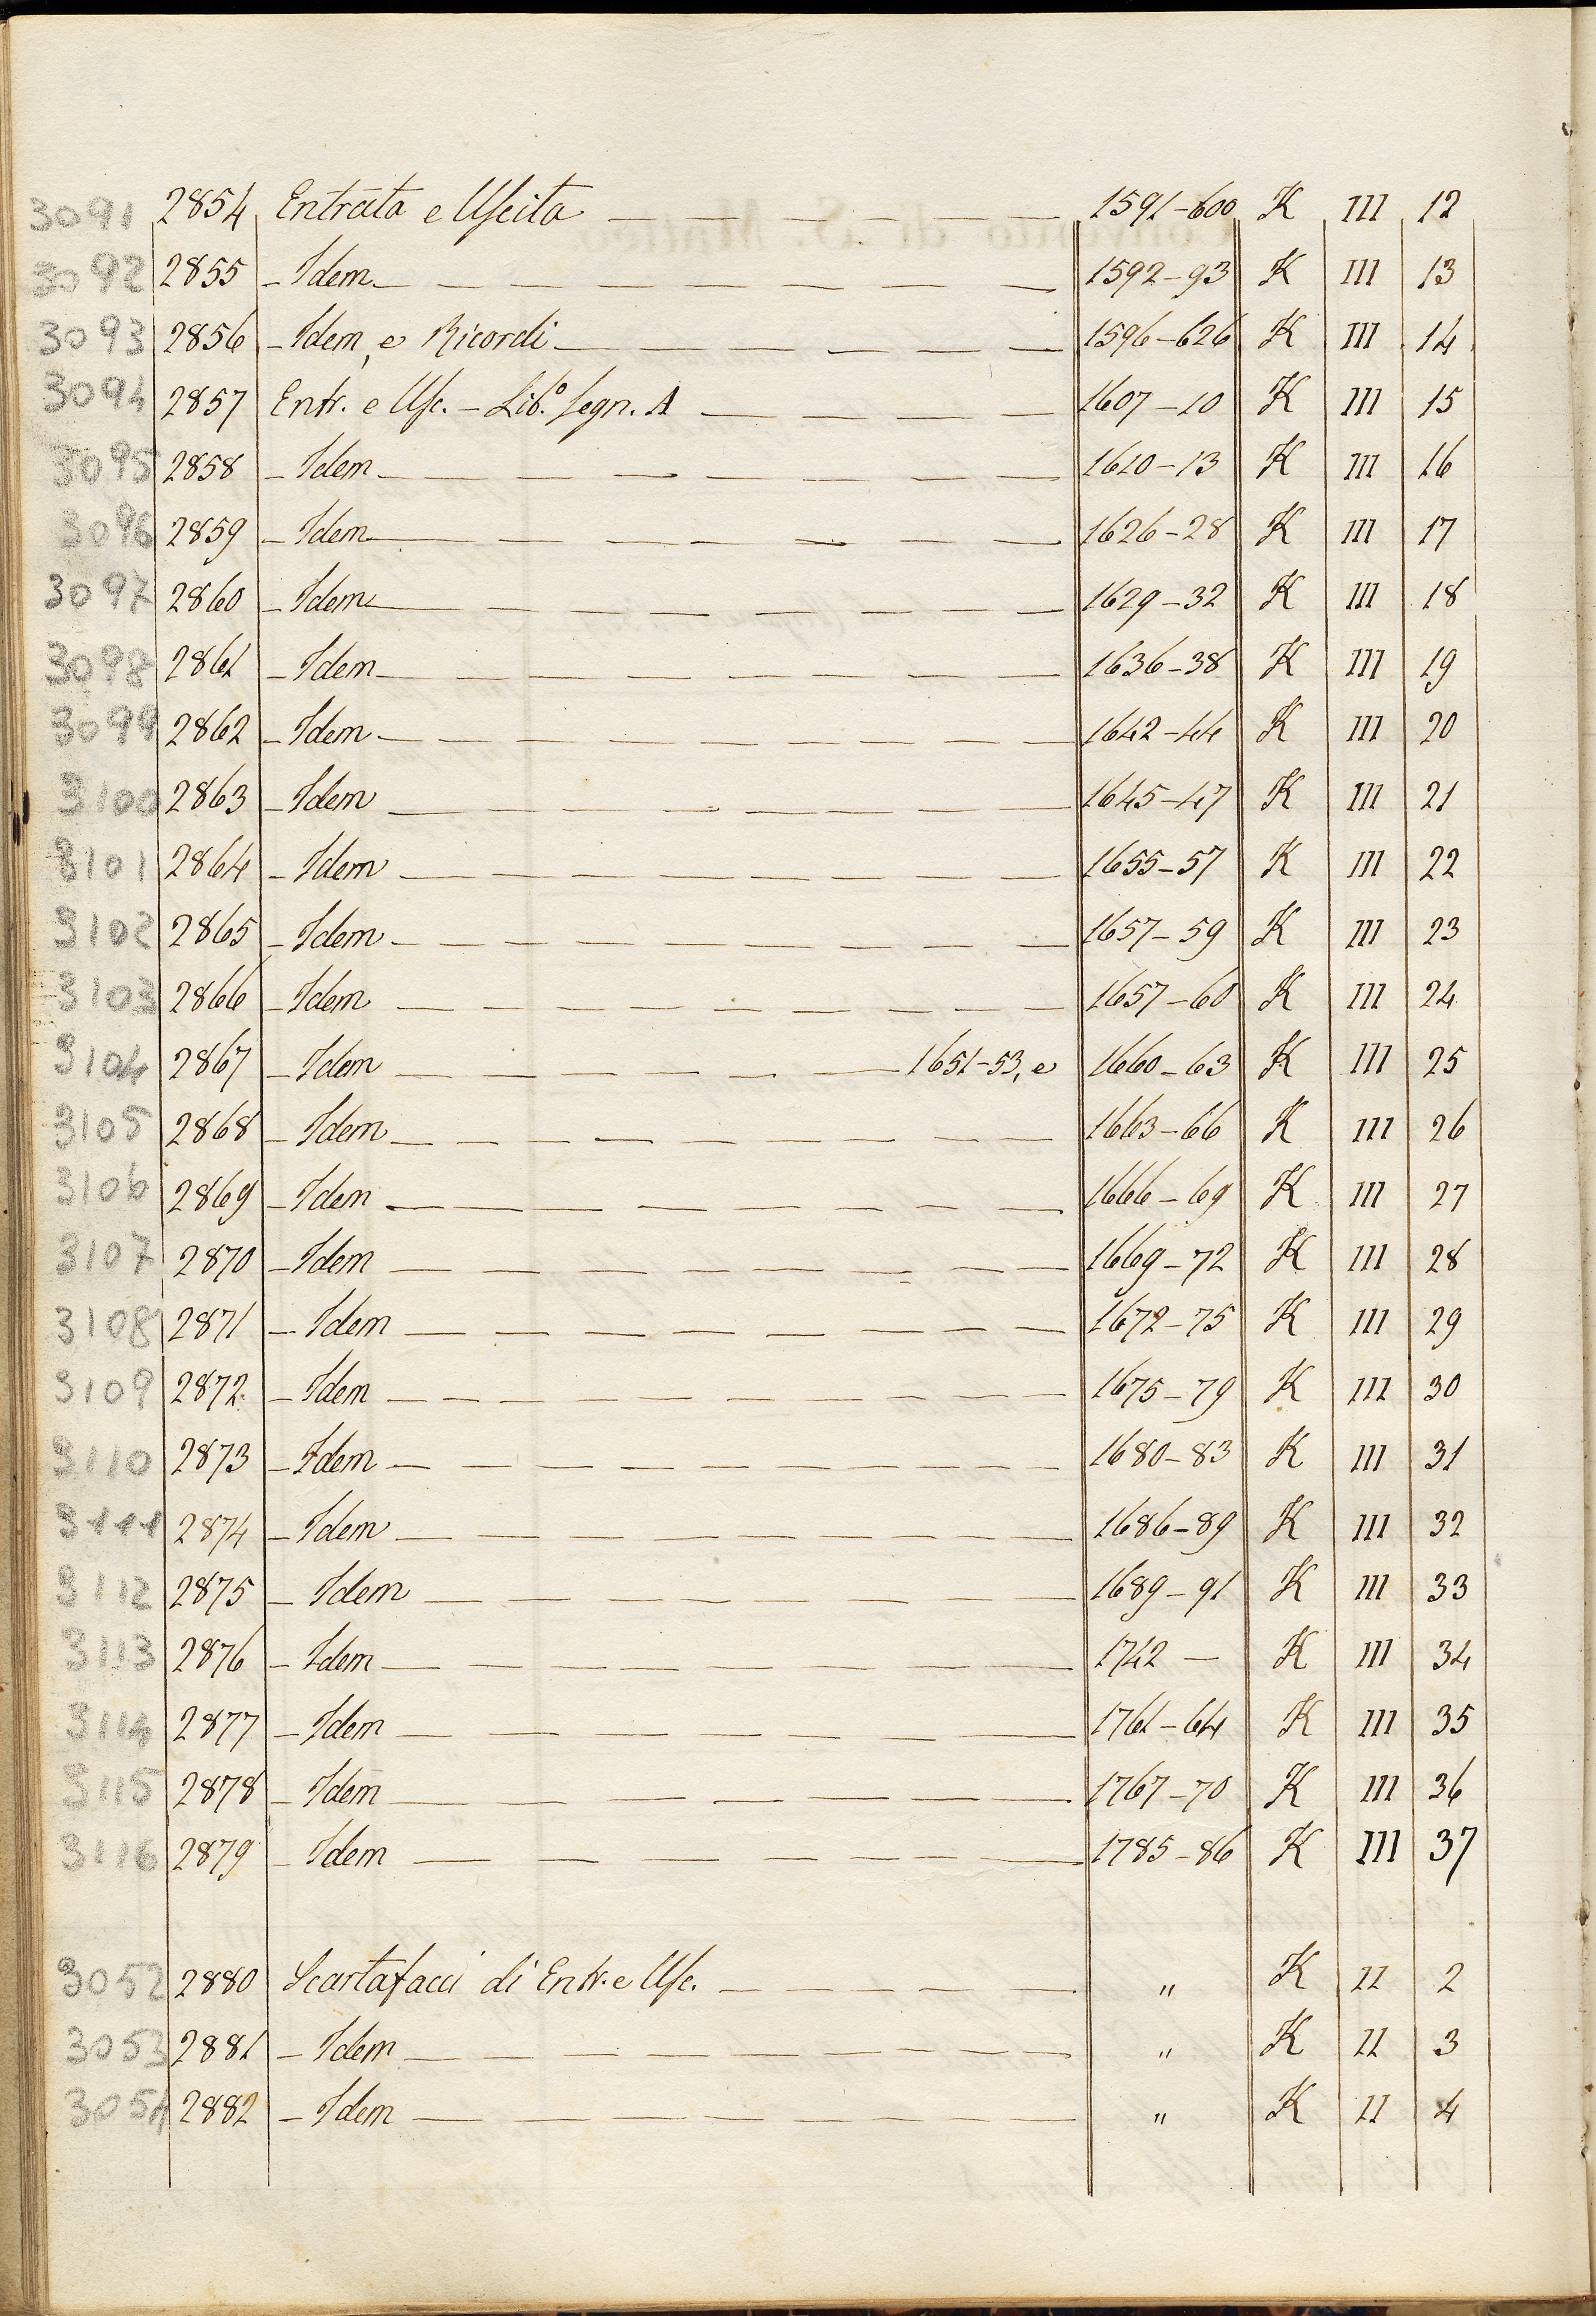 3091 2854 Entrata e Uscita 1591-600 K III 12
3092 2855 - Idem 1592-93 K III 13
3093 2856 - Idem, e Ricordi 1596-626 K III 14
3094 2857 Entr. e Usc. - Lib.º segn. A 1607-10 K III 15
3095 2858 - Idem 1610-13 K III 16
3096 2859 - Idem 1626-28 K III 17
3097 2860 - Idem 1629-32 K III 18
3098 2861 - Idem 1636-38 K III 19
3099 2862 - Idem 1642-44 K III 20
3100 2863 - Idem 1645-47 K III 21
3101 2864 - Idem 1655-57 K III 22
3102 2865 - Idem 1657-59 K III 23
3103 2866 - Idem 1657-60 K III 24
3104 2867 - Idem 1651-53, e 1660-63 K III 25
3105 2868 - Idem 1663-66 K III 26
3106 2869 - Idem 1666-69 K III 27
3107 2870 - Idem 1669-72 K III 28
3108 2871 - Idem 1672-75 K III 29
3109 2872 - Idem 1675-79 K III 30
3110 2873 - Idem 1680-83 K III 31
3111 2874 - Idem 1686-89 K III 32
3112 2875 - Idem 1689-91 K III 33
3113 2876 - Idem 1742 - K III 34
3114 2877 - Idem 1761-64 K III 35
3115 2878 - Idem 1767-70 K III 36
3116 2879 - Idem 1785-86 K III 37
3052 2880 Scartafacci di Entr. e Usc. " K II 2
3053 2881 - Idem " K II 3
3054 2882 - Idem " K II 4